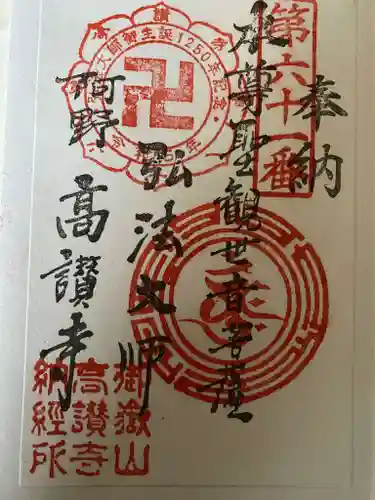 第六十一番
奉納
本尊聖観世音菩薩
弘法大師
阿野
高讃寺
大師御生誕1250年記念
御嶽山
高讃寺
納経所